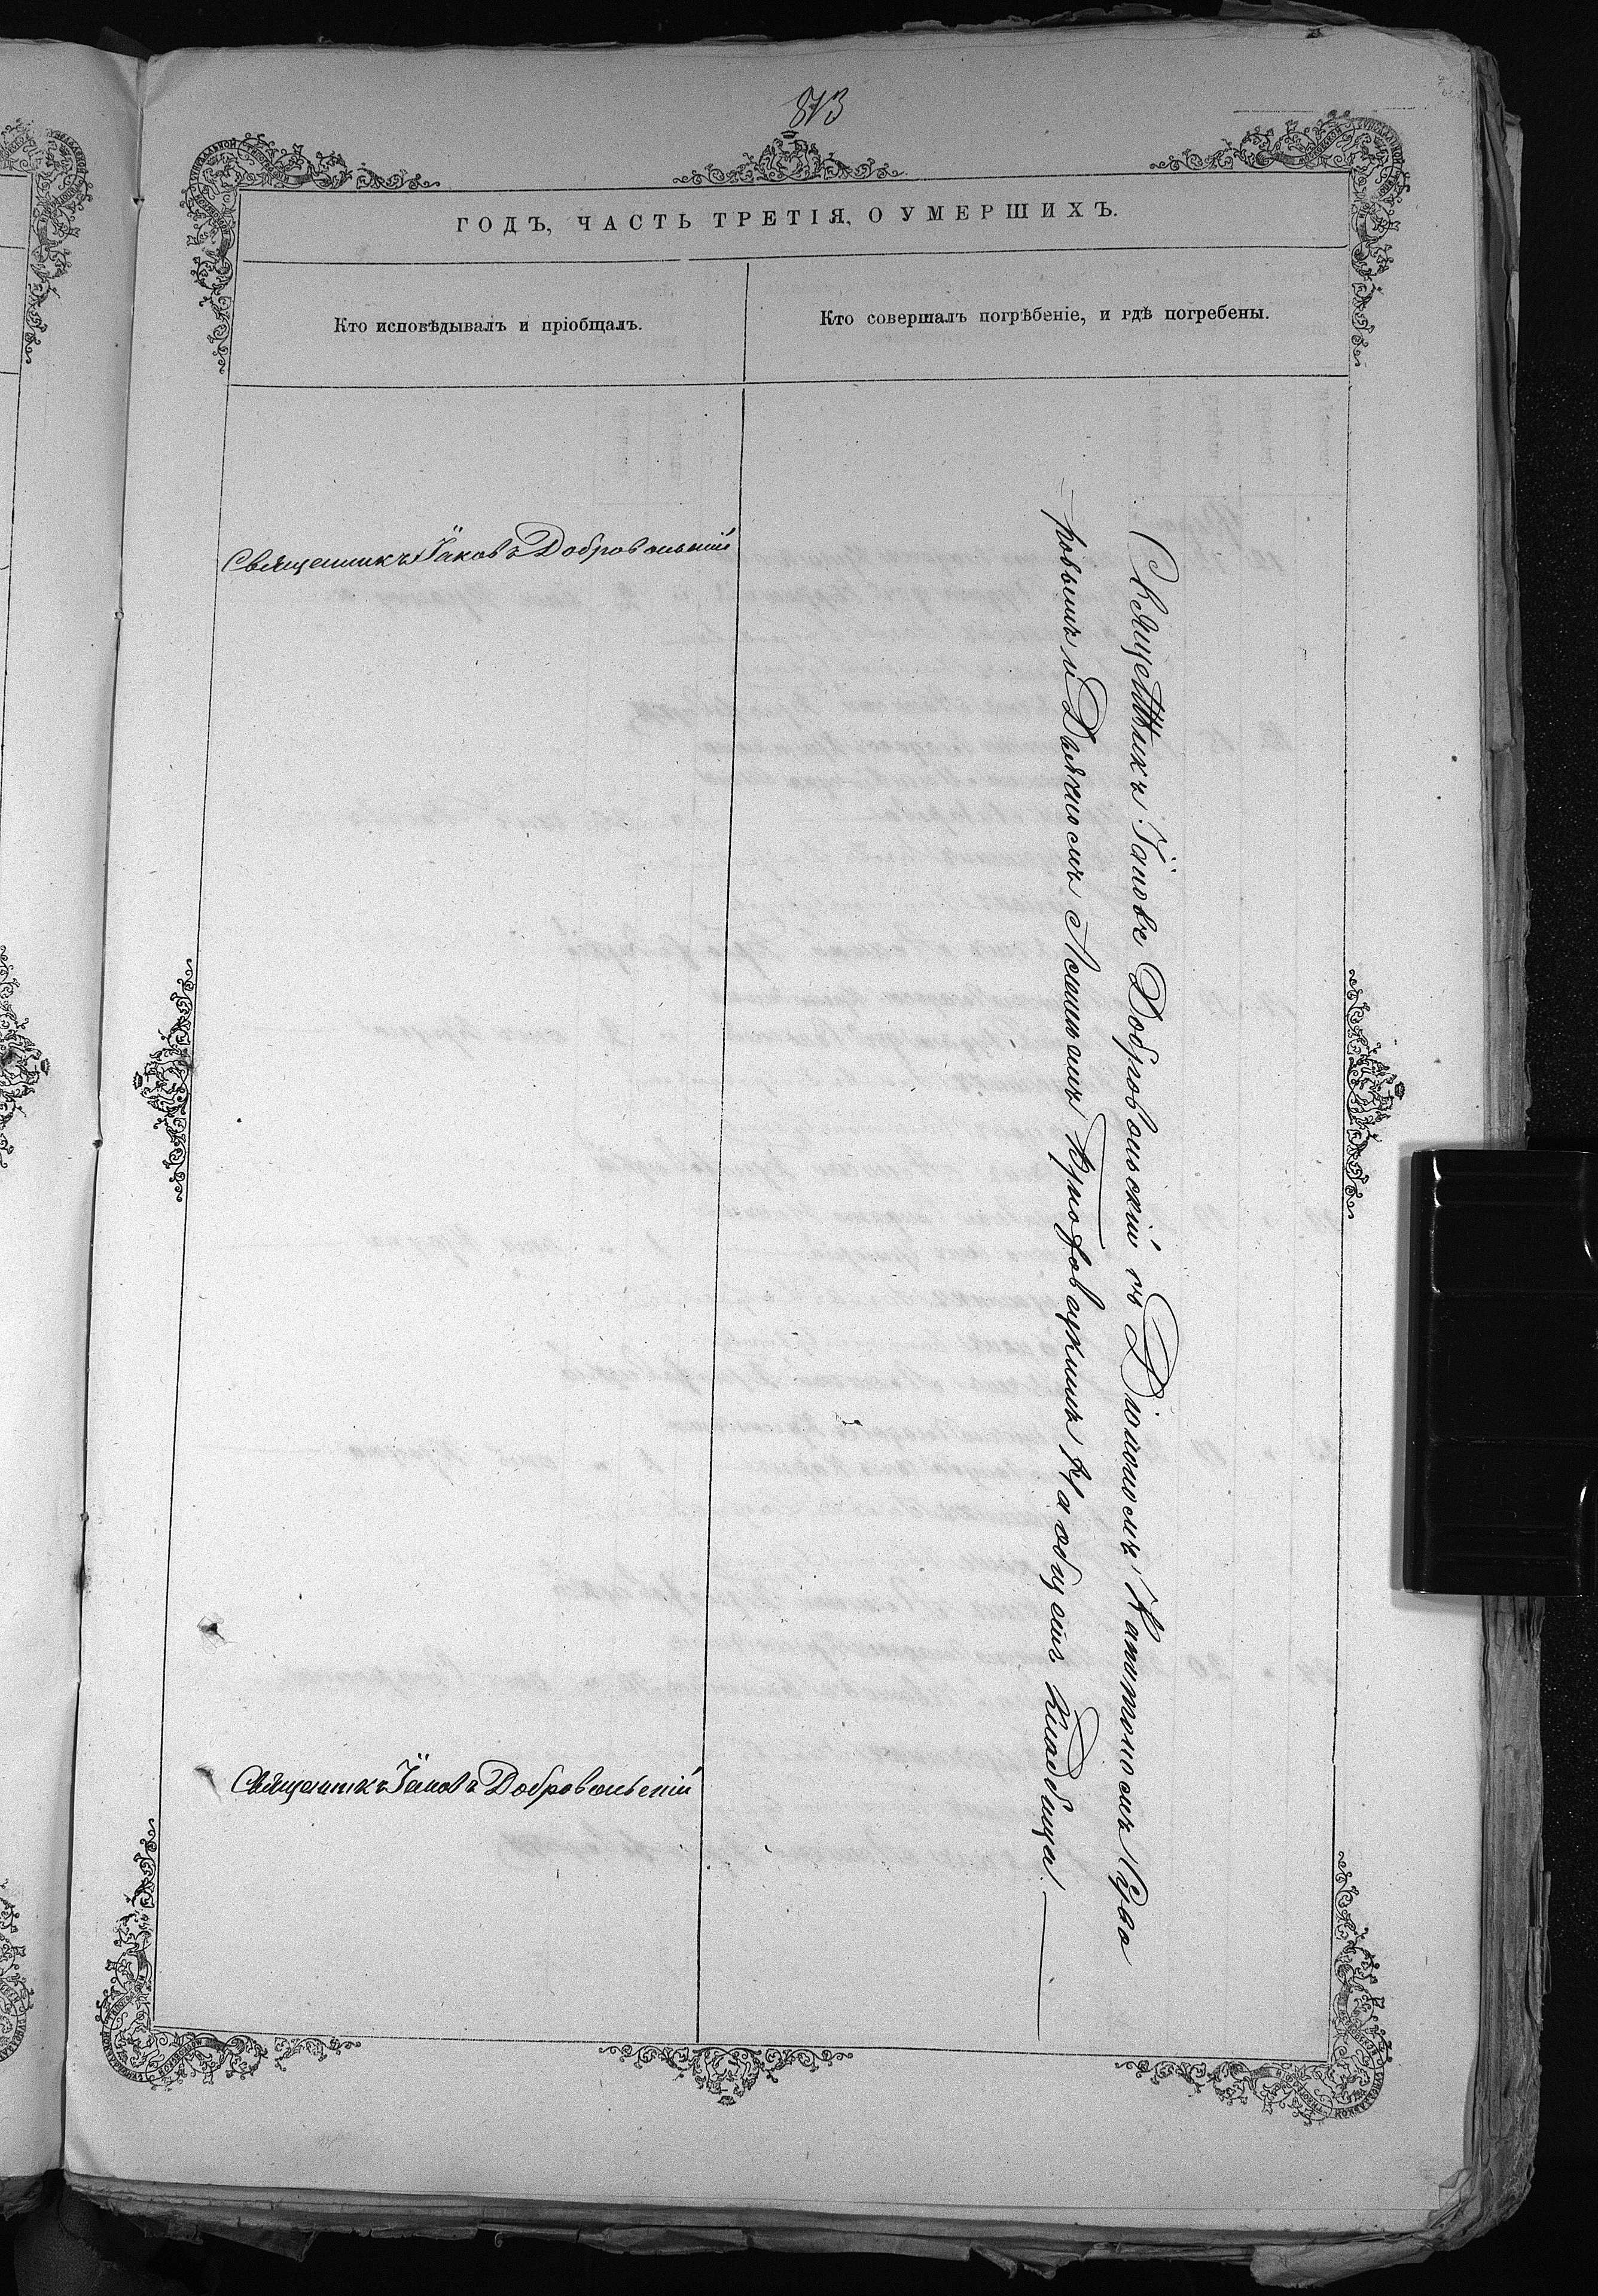 873
ГОДЪ, ЧАСТЬ ТРЕТІЯ, О УМЕРШИХЪ.
Кто исповѣдывалъ и пріобщалъ.
Кто совершалъ погрѣбеніе, и гдѣ погребены.
Священникъ Іаковъ Добровольскій
Священникъ Іаковъ Добровольскій съ Діакономъ Капитономъ
и Дьячкомъ На общемъ Кладбища.
Священникъ Іаковъ Добровольскій